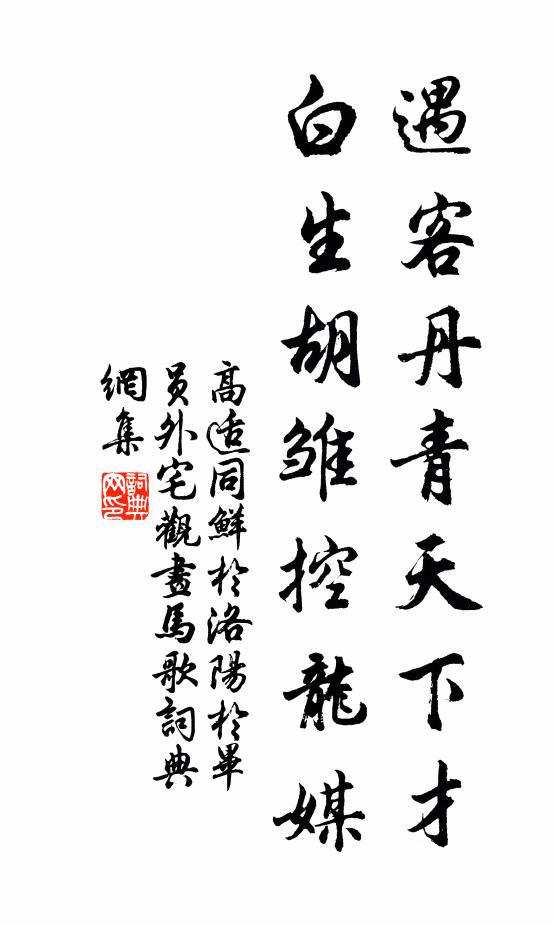 遇客丹青天下才
白生胡雏控龍媒
高适同鮮於洛陽於畢
员外宅觀畫馬歌詞典
網集
詞典
网印